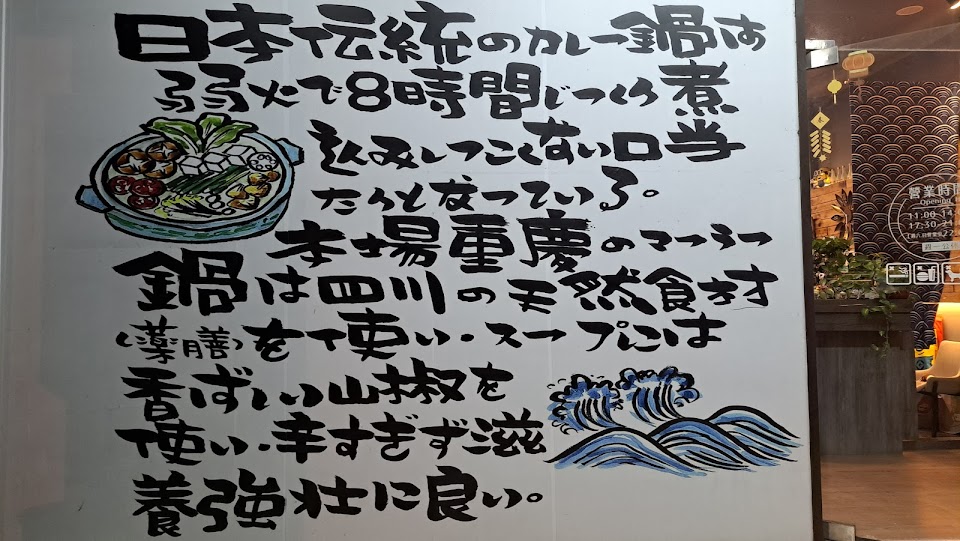 日本伝統のカレー鍋は
弱火で8時間じっくり煮
込みしつこくない口当
たりと なっている。
本場重慶のマーラー
鍋は四川の天然食材
(薬膳)を使い、スープには
香ばしい山椒を
使い、辛すぎず滋
養強壮に良い。
營業時間
Opening
11:00-14
17:30-21